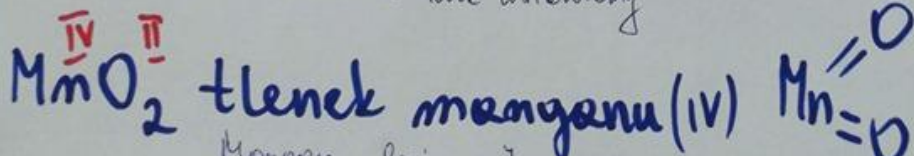 IV II
MnO2 tlenek manganu (IV) Mn=O
=O